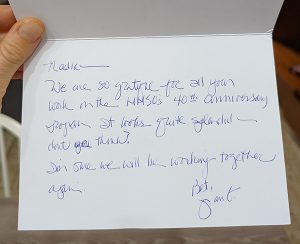 Nadia—
We are so grateful for all your
work on the NHSO's 40th anniversary
program. It looks quite splendid—
don't you think?
I'm sure we will be working together
again.
Best,